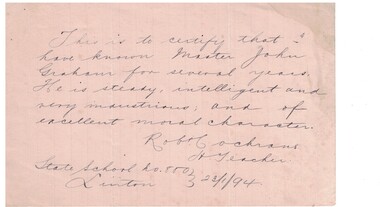 This is to certify that I
have known Master John
Graham for several years.
He is steady, intelligent and
very industrious, and of
excellent moral character.
Robt Cochrane
H Teacher.
State School no. 880
Linton 23/1/94